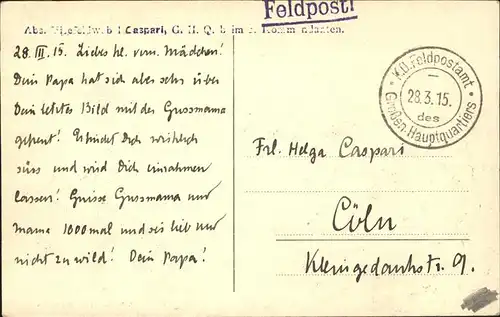 Feldpost!
Abs. Caspari, G. H. Q. beim
28. III. 15. Liebes kl. Mädchen!
Dein Papa hat sich aber sehr über
Dein letztes Bild mit der Grossmama
gefreut! Er findet Dich wirklich
süss und wird Dich einrahmen
lassen! Grüsse Grossmama und
Mama 1000 mal und sei lieb und
nicht zu wild! Dein Papa!
K.D. Feldpostamt
28.3.15.
des
Großen Hauptquartiers
Frl. Helga Caspari
Cöln
Kleingedankstr. 9.